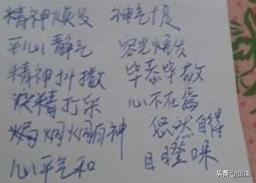 精神焕发 神气十足
平心静气 容光焕发
精神抖擞 毕恭毕敬
没精打采 心不在焉
炯炯有神 悠然自得
心平气和 目瞪
头条